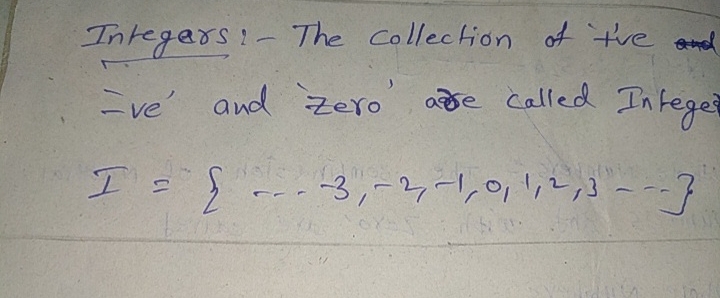 Integers :- The collection of '+'ve and
'-ve' and 'zero' are called Integer
I = { ... -3, -2, -1, 0, 1, 2, 3 ---}